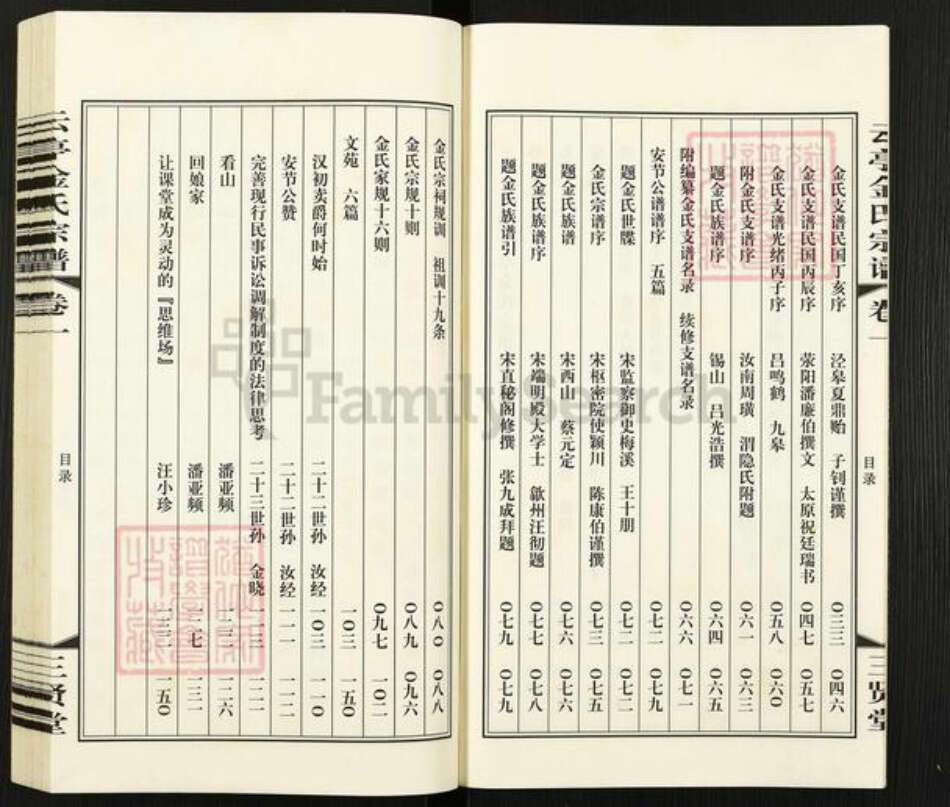 云亭金氏宗谱
卷一
目录
三贤堂
金氏支谱民国丁亥序 泾皋夏鼎贻 子钊谨撰 〇三三 〇四六
金氏支谱民国丙辰序 荥阳潘廉伯撰文 太原祝廷瑞书 〇四七 〇五七
金氏支谱光绪丙子序 吕鸣鹤 九皋 〇五八 〇六〇
附金氏支谱序 汝南周璜 渭隐氏附题 〇六一 〇六三
题金氏族谱序 锡山 吕光浩撰 〇六四 〇六五
附编纂金氏支谱名录 续修支谱名录 〇六六 〇七一
安节公谱谱序 五篇 〇七二 〇七九
题金氏世牒 宋监察御史梅溪 王十朋 〇七二 〇七二
金氏宗谱序 宋枢密院使颖川 陈康伯谨撰 〇七三 〇七五
题金氏族谱 宋西山 蔡元定 〇七六 〇七六
题金氏族谱序 宋端明殿大学士 歙州汪彻题 〇七七 〇七八
题金氏族谱引 宋直秘阁修撰 张九成拜题 〇七九 〇七九
金氏宗祠规训 祖训十九条 〇八〇 〇八八
金氏宗规十则 〇八九 〇九六
金氏家规十六则 〇九七 一〇二
文苑 六篇 一〇三 一五〇
汉初卖爵何时始 二十二世孙 汝经 一〇三 一一〇
安节公赞 二十二世孙 汝经 一一一 一一二
完善现行民事诉讼调解制度的法律思考 二十三世孙 金晓 一一三 一二二
看山 潘亚频 一二三 一二六
回娘家 潘亚频 一二七 一三一
让课堂成为灵动的『思维场』 汪小珍 一三二 一五〇
云亭金氏宗谱
卷一
目录
三贤堂
FamilySearch